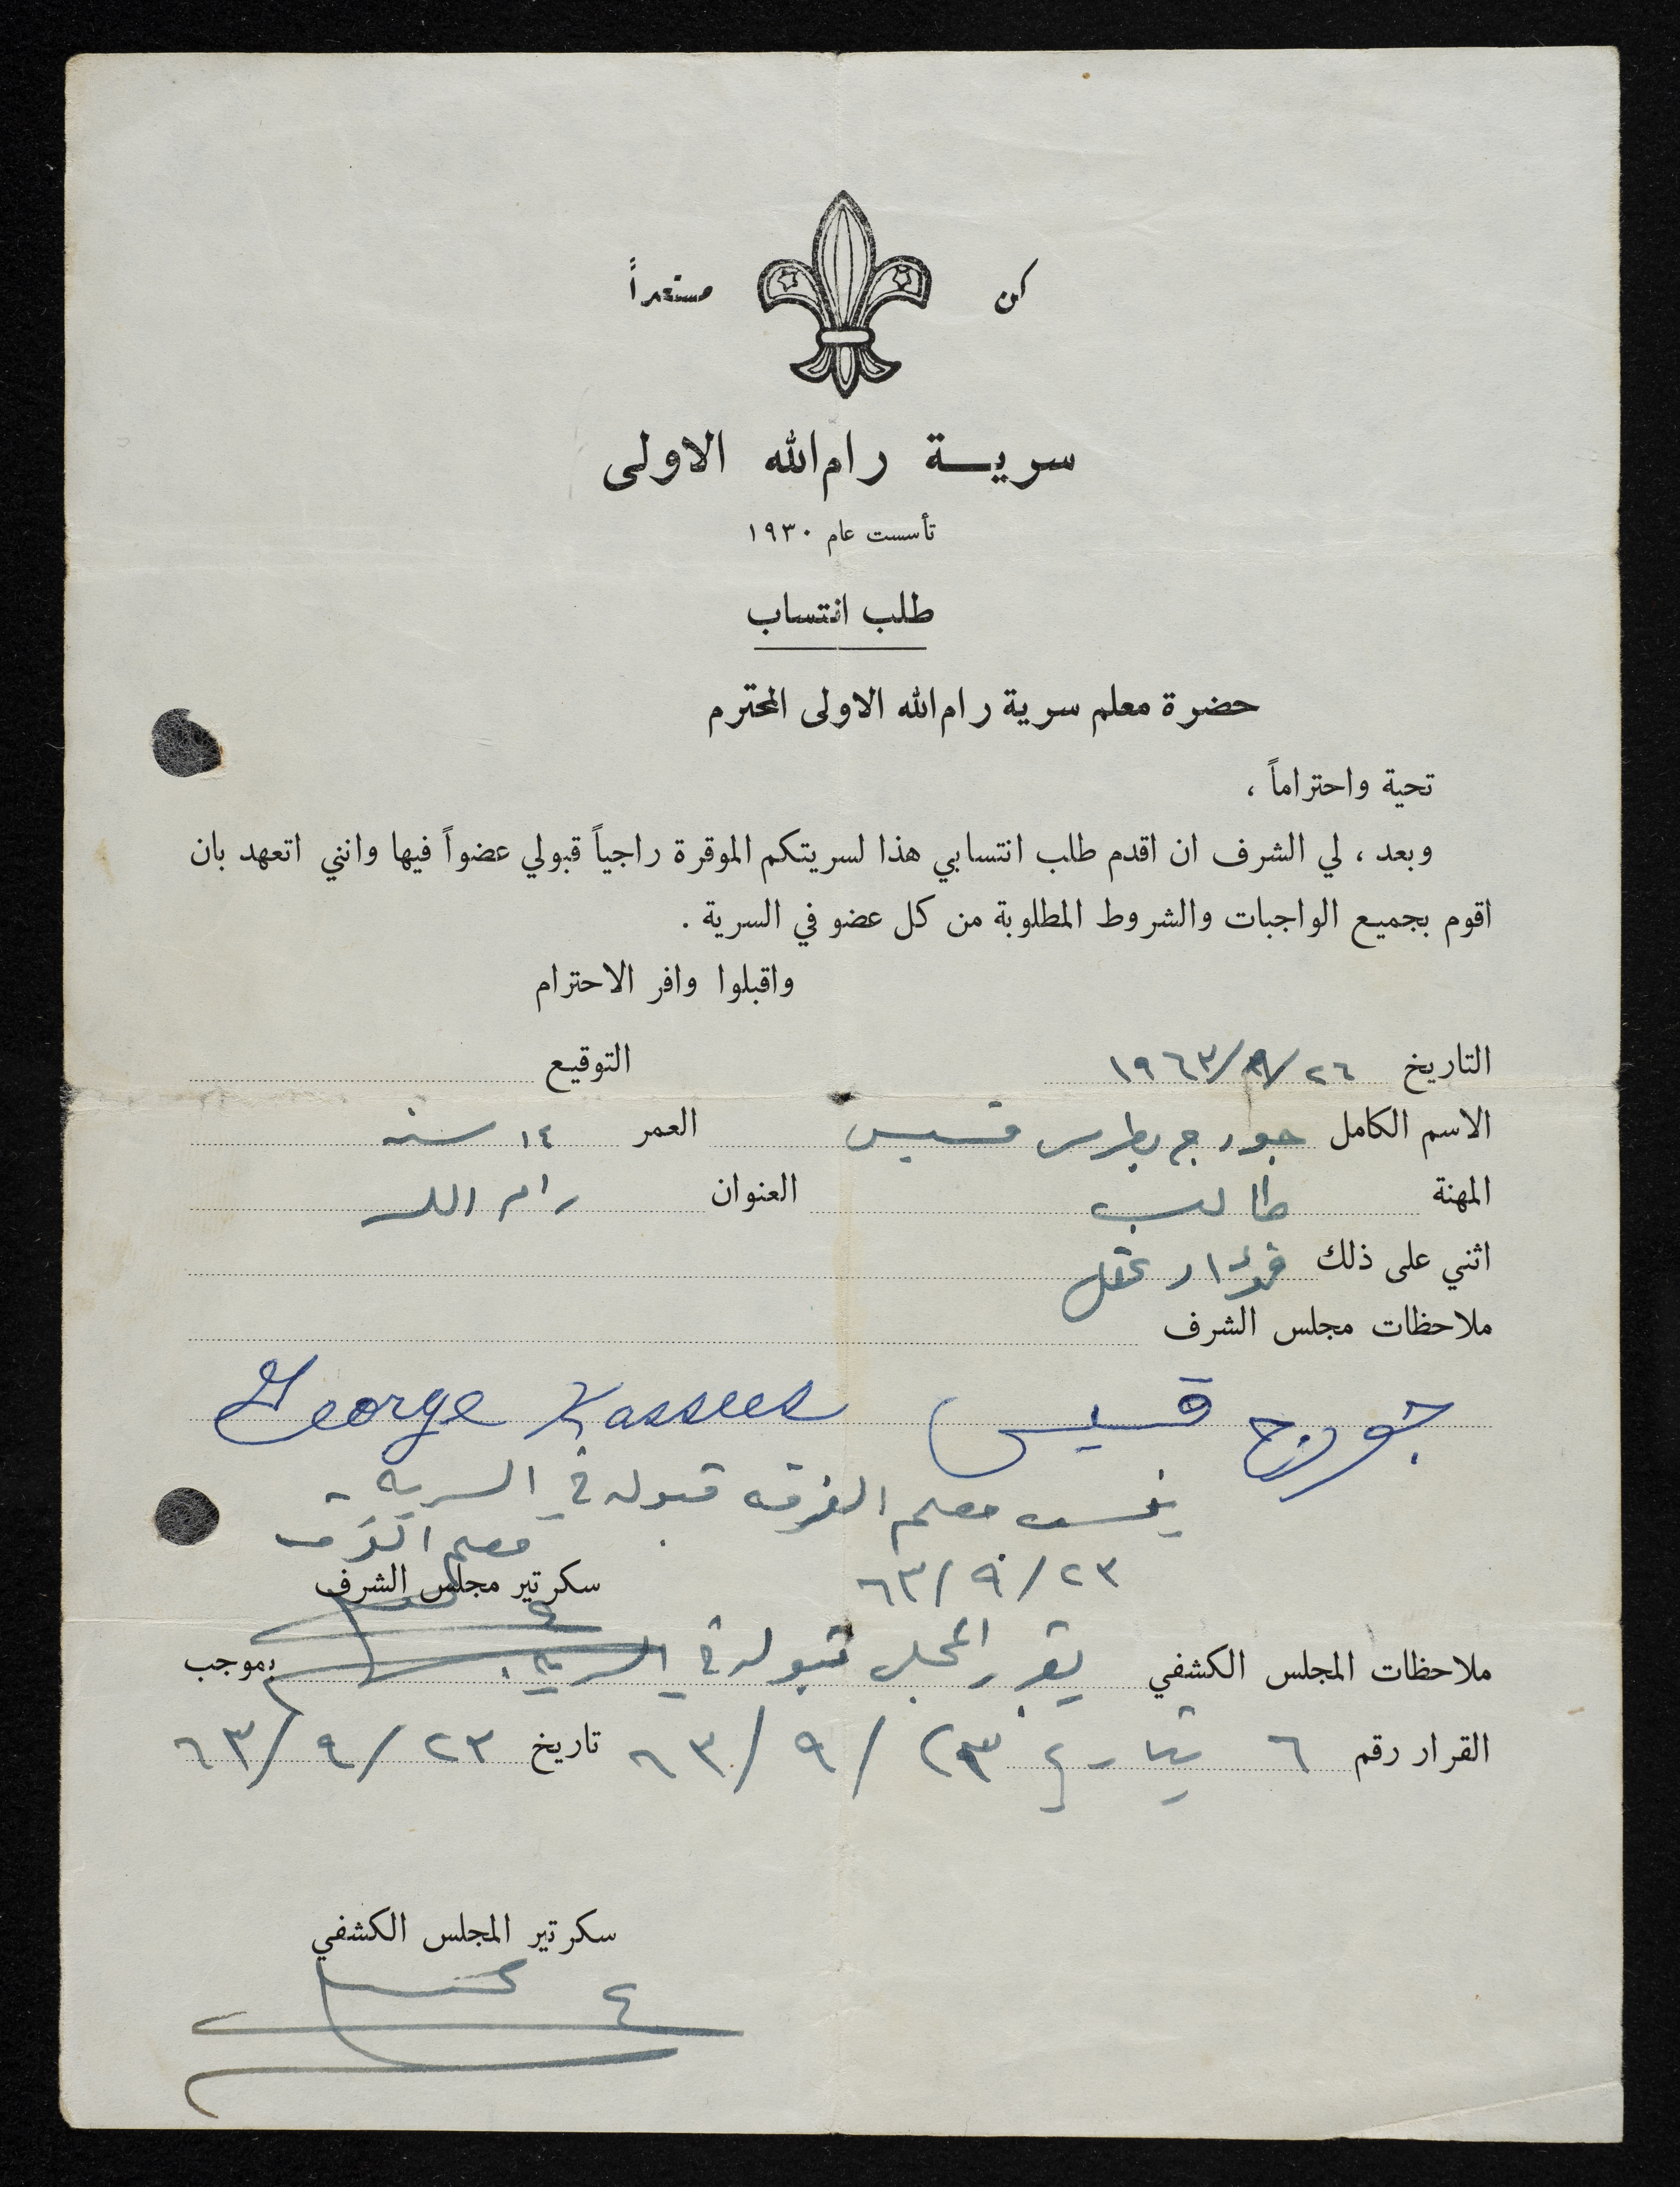 كن مستعداً
سرية رام الله الاولى
تأسست عام ١٩٣٠
طلب انتساب
حضرة معلم سرية رام الله الاولى المحترم
تحية واحتراماً ،
وبعد ، لي الشرف ان اقدم طلب انتسابي هذا لسريتكم الموقرة راجياً قبولي عضواً فيها وانني اتعهد بان
اقوم بجميع الواجبات والشروط المطلوبة من كل عضو في السرية .
واقبلوا وافر الاحترام
التاريخ ٢٦/٨/١٩٦٣ التوقيع
الاسم الكامل جورج بطرس قسيس العمر ١٤ سنه
المهنة طالب العنوان رام الله
اثني على ذلك فؤاد عقل
ملاحظات مجلس الشرف
جورج قسيس George Kassees
ينسب معلم الفرقه قبوله في السريه -
معلم الفرقه
٢٣/٩/٦٣
سكرتير مجلس الشرف
ملاحظات المجلس الكشفي يقرر المجلس قبوله في السريه . بموجب
القرار رقم ٦ بتاريخ ٢٣/٩/٦٣ تاريخ ٢٣/٩/٦٣
سكرتير المجلس الكشفي